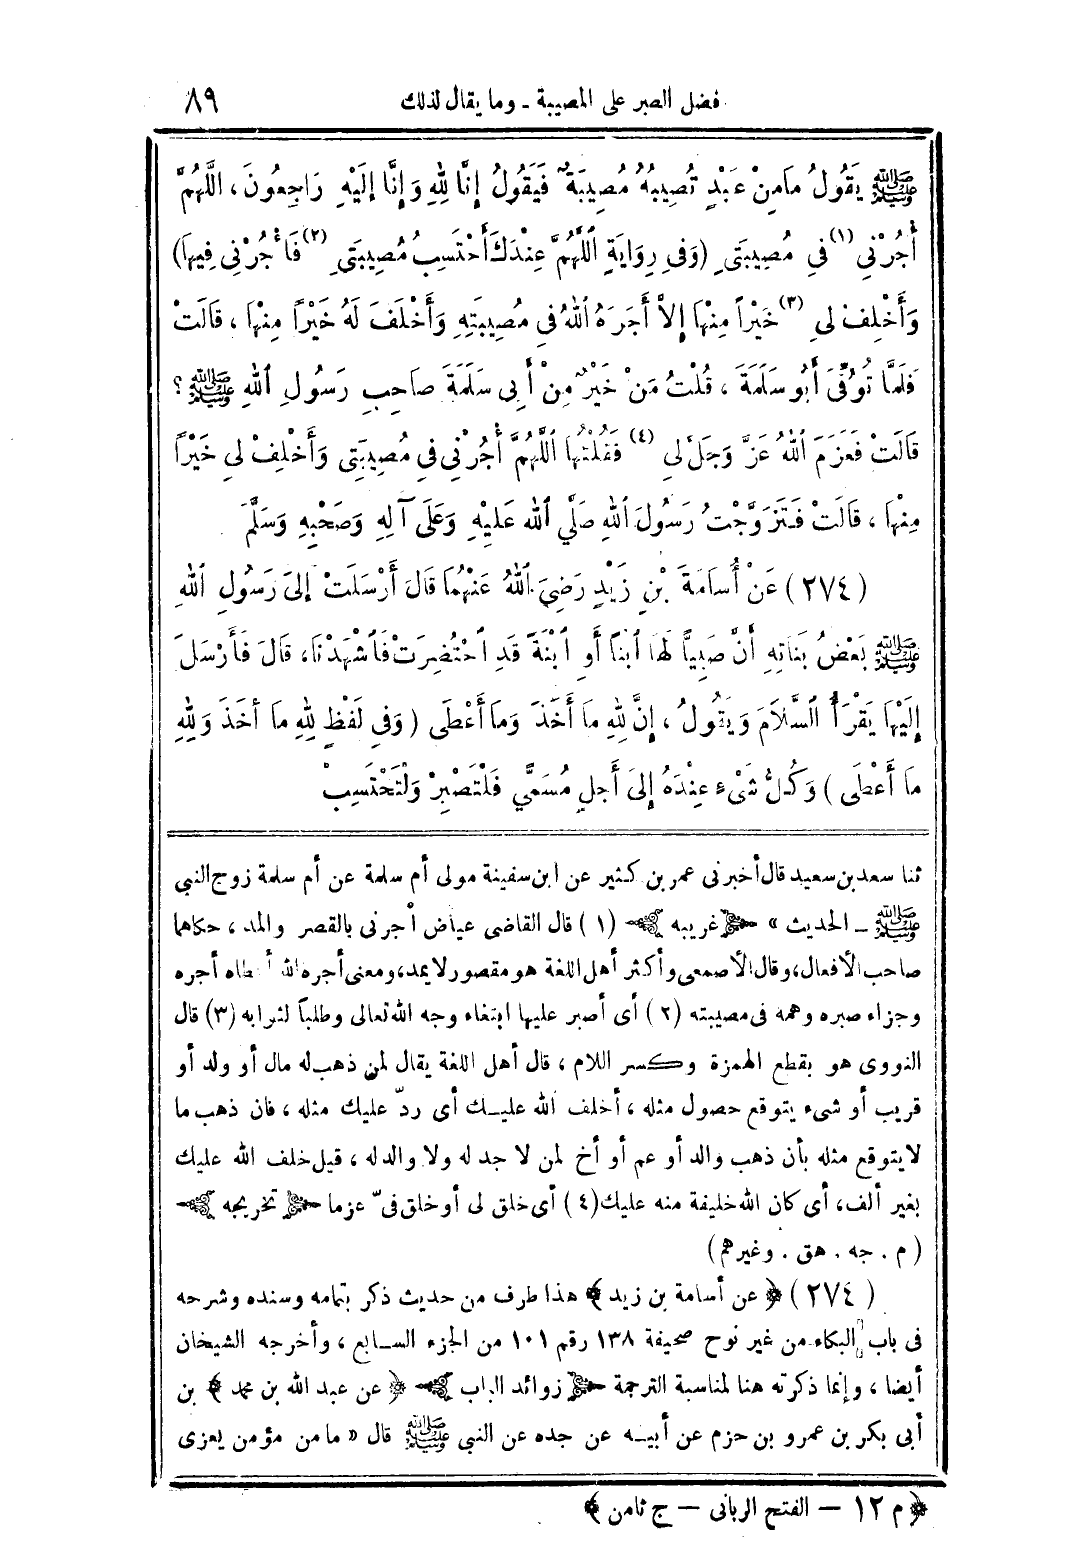 فضل الصبر على المصيبة - وما يقال لذلك ٨٩
ﷺ يَقُولُ مَامِنْ عَبْدٍ تُصِيبُهُ مُصِيبَةٌ فَيَقُولُ إِنَّا لِلهِ وَإِنَّا إِلَيْهِ رَاجِعُونَ ، اللَّهُمَّ
أْجُرْنِي (١) فِي مُصِيبَتِي (وَفِي رِوَايَةٍ اللَّهُمَّ عِنْدَكَ أَحْتَسِبُ مُصِيبَتِي (٢) فَأْجُرْنِي فِيهَا)
وَأَخْلِفْ لِي (٣) خَيْرًا مِنْهَا إِلاَّ أَجَرَهُ اللهُ فِي مُصِيبَتِهِ وَأَخْلَفَ لَهُ خَيْرًا مِنْهَا ، قَالَتْ
فَلَمَّا تُوُفِّيَ أَبُو سَلَمَةَ ، قُلْتُ مَنْ خَيْرٌ مِنْ أَبِي سَلَمَةَ صَاحِبِ رَسُولِ اللهِ ﷺ ؟
قَالَتْ فَعَزَمَ اللهُ عَزَّ وَجَلَّ لِي (٤) فَقُلْتُهَا اللَّهُمَّ أْجُرْنِي فِي مُصِيبَتِي وَأَخْلِفْ لِي خَيْرًا
مِنْهَا ، قَالَتْ فَتَزَوَّجْتُ رَسُولَ اللهِ صَلَّي اللهُ عَلَيْهِ وَعَلَى آلِهِ وَصَحْبِهِ وَسَلَّمَ
(٢٧٤) عَنْ أُسَامَةَ بْنِ زَيْدٍ رَضِيَ اللهُ عَنْهُمَا قَالَ أَرْسَلَتْ إِلَى رَسُولِ اللهِ
ﷺ بَعْضُ بَنَاتِهِ أَنَّ صَبِيًّا لَهَا ابْنًا أَوِ ابْنَةً قَدِ احْتُضِرَتْ فَاشْهَدْنَا، قَالَ فَأَرْسَلَ
إِلَيْهَا يَقْرَأُ السَّلاَمَ وَيَقُولُ ، إِنَّ لِلهِ مَا أَخَذَ وَمَا أَعْطَى ( وَفِي لَفْظٍ لِلهِ مَا أَخَذَ وَلِلهِ
مَا أَعْطَى ) وَكُلُّ شَيْءٍ عِنْدَهُ إِلَى أَجَلٍ مُسَمًّي فَلْتَصْبِرْ وَلْتَحْتَسِبْ
ثنا سعد بن سعيد قال أخبرنى عمر بن كثير عن ابن سفينة مولى أم سلمة عن أم سلمة زوج النبي
ﷺ - الحديث » غريبه (١) قال القاضى عياض أجرنى بالقصر والمد ، حكاهما
صاحب الأفعال، وقال الأصمعى وأكثر أهل اللغة هو مقصور لا يمد، ومعنى أجره الله أعطاه أجره
وجزاء صبره وهمه فى مصيبته (٢) أى أصبر عليها ابتغاء وجه الله تعالى وطلبًا لثوابه (٣) قال
النووى هو بقطع الهمزة وكسر اللام ، قال أهل اللغة يقال لمن ذهب له مال أو ولد أو
قريب أو شىء يتوقع حصول مثله ، أخلف الله عليك أى ردّ عليك مثله ، فان ذهب ما
لا يتوقع مثله بأن ذهب والد أو عم أو أخ لمن لا جد له ولا والد له ، قيل خلف الله عليك
بغير ألف، أى كان الله خليفة منه عليك (٤) أى خلق لى أو خلق فىّ عزما تخريجه
( م . جه . هق . وغيرهم )
(٢٧٤) ﴿ عن أسامة بن زيد ﴾ هذا طرف من حديث ذكر بتمامه وسنده وشرحه
فى باب البكاء من غير نوح صحيفة ١٣٨ رقم ١٠١ من الجزء السابع ، وأخرجه الشيخان
أيضا ، وإنما ذكرته هنا لمناسبة الترجمة زوائد الباب ﴿ عن عبد الله بن محمد ﴾ بن
أبى بكر بن عمرو بن حزم عن أبيه عن جده عن النبي ﷺ قال « ما من مؤمن يعزى
﴿ م ١٢ — الفتح الربانى — ج ثامن ﴾